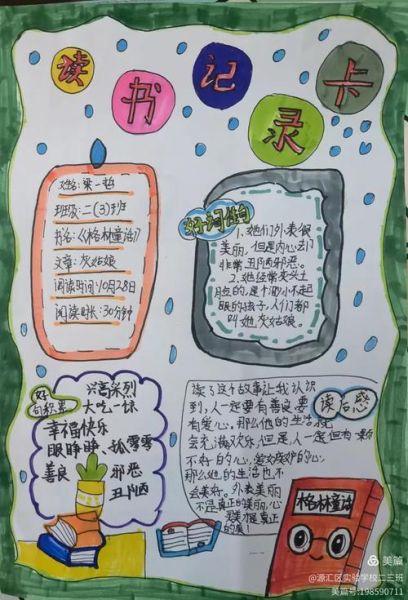 读书记录卡
姓名:梁一哲
班级:二(3)班
书名:《格林童话》
文章:灰姑娘
阅读时间:10月28日
阅读时长:30分钟
好词佳句
1、她们外表很
美丽,但是内心去门
非常丑陋邪恶。
2、她经常灰头土
脸的,是个
眼的孩子,人们都
叫她灰姑娘。
好
句积累
兴高采烈
大吃一惊
幸福快乐
眼睁睁、孤零零
善良 邪恶
丑陋
读后感
读了这个故事让我认识
到,人一定要有善良,要
有爱心。那么他的生活就
会充满欢乐,但是,人一定但有一颗
不好的心,爱嫉妒的心,
那么她的生活也不
会美好。外表美丽
不是真正的美丽,心
灵美才是真正
的美!
格林童话
美篇
@源汇区实验学校二三班
美篇号:198590711